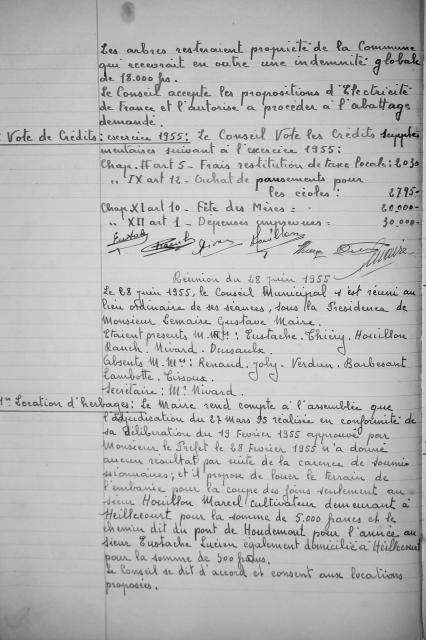 Les arbres resteraient propriété de la Commune
qui recevrait en outre une indemnité globale
de 18.000 frs.
Le Conseil accepte les propositions d'Electricité
de France et l'autorise a procéder à l'abattage
demandé.
Vote de Crédits: exercice 1955: Le Conseil Vote les Crédits supplé-
mentaires suivant à l'exercice 1955:
Chap. art 5 - Frais restitution de taxe locale: 2030
" IX art 12 - Achat de pansements pour
les écoles: 2795-
Chap XI art 10 - Fête des Mères = 20.000-
" XII art 1 - Dépenses imprévues = 30.000-
Eustache Houillon
Réunion du 28 juin 1955
Le 28 juin 1955, le Conseil Municipal s'est réuni au
lieu ordinaire de ses séances, sous la Présidence de
Monsieur Lemaire Gustave Maire.
Etaient présents M.M.: Eustache. Thiéry. Houillon
Rauch. Nivard. Dussaulx.
Absents M.M.: Renaud. Joly. Verdun. Barbesant
Lambotte. Cissoux.
Secrétaire: Mr Nivard.
Location d'herbages: Le Maire rend compte à l'assemblée que
l'adjudication du 27 Mars 55 réalisée en conformité de
sa délibération du 19 Fevrier 1955 approuvée par
Monsieur le Préfet le 28 Fevrier 1955 n'a donné
aucun résultat par suite de la carence de soumis-
sionnaires; et il propose de louer le terrain de
l'embanie pour la coupe des foins seulement au
sieur Houillon Marcel Cultivateur demeurant à
Heillecourt pour la somme de 5.000 francs et le
chemin dit du pont de Houdemont pour l'année au
sieur Eustache Lucien également domicilié à Heillecourt
pour la somme de 500 francs.
Le Conseil se dit d'accord et consent aux locations
proposées.